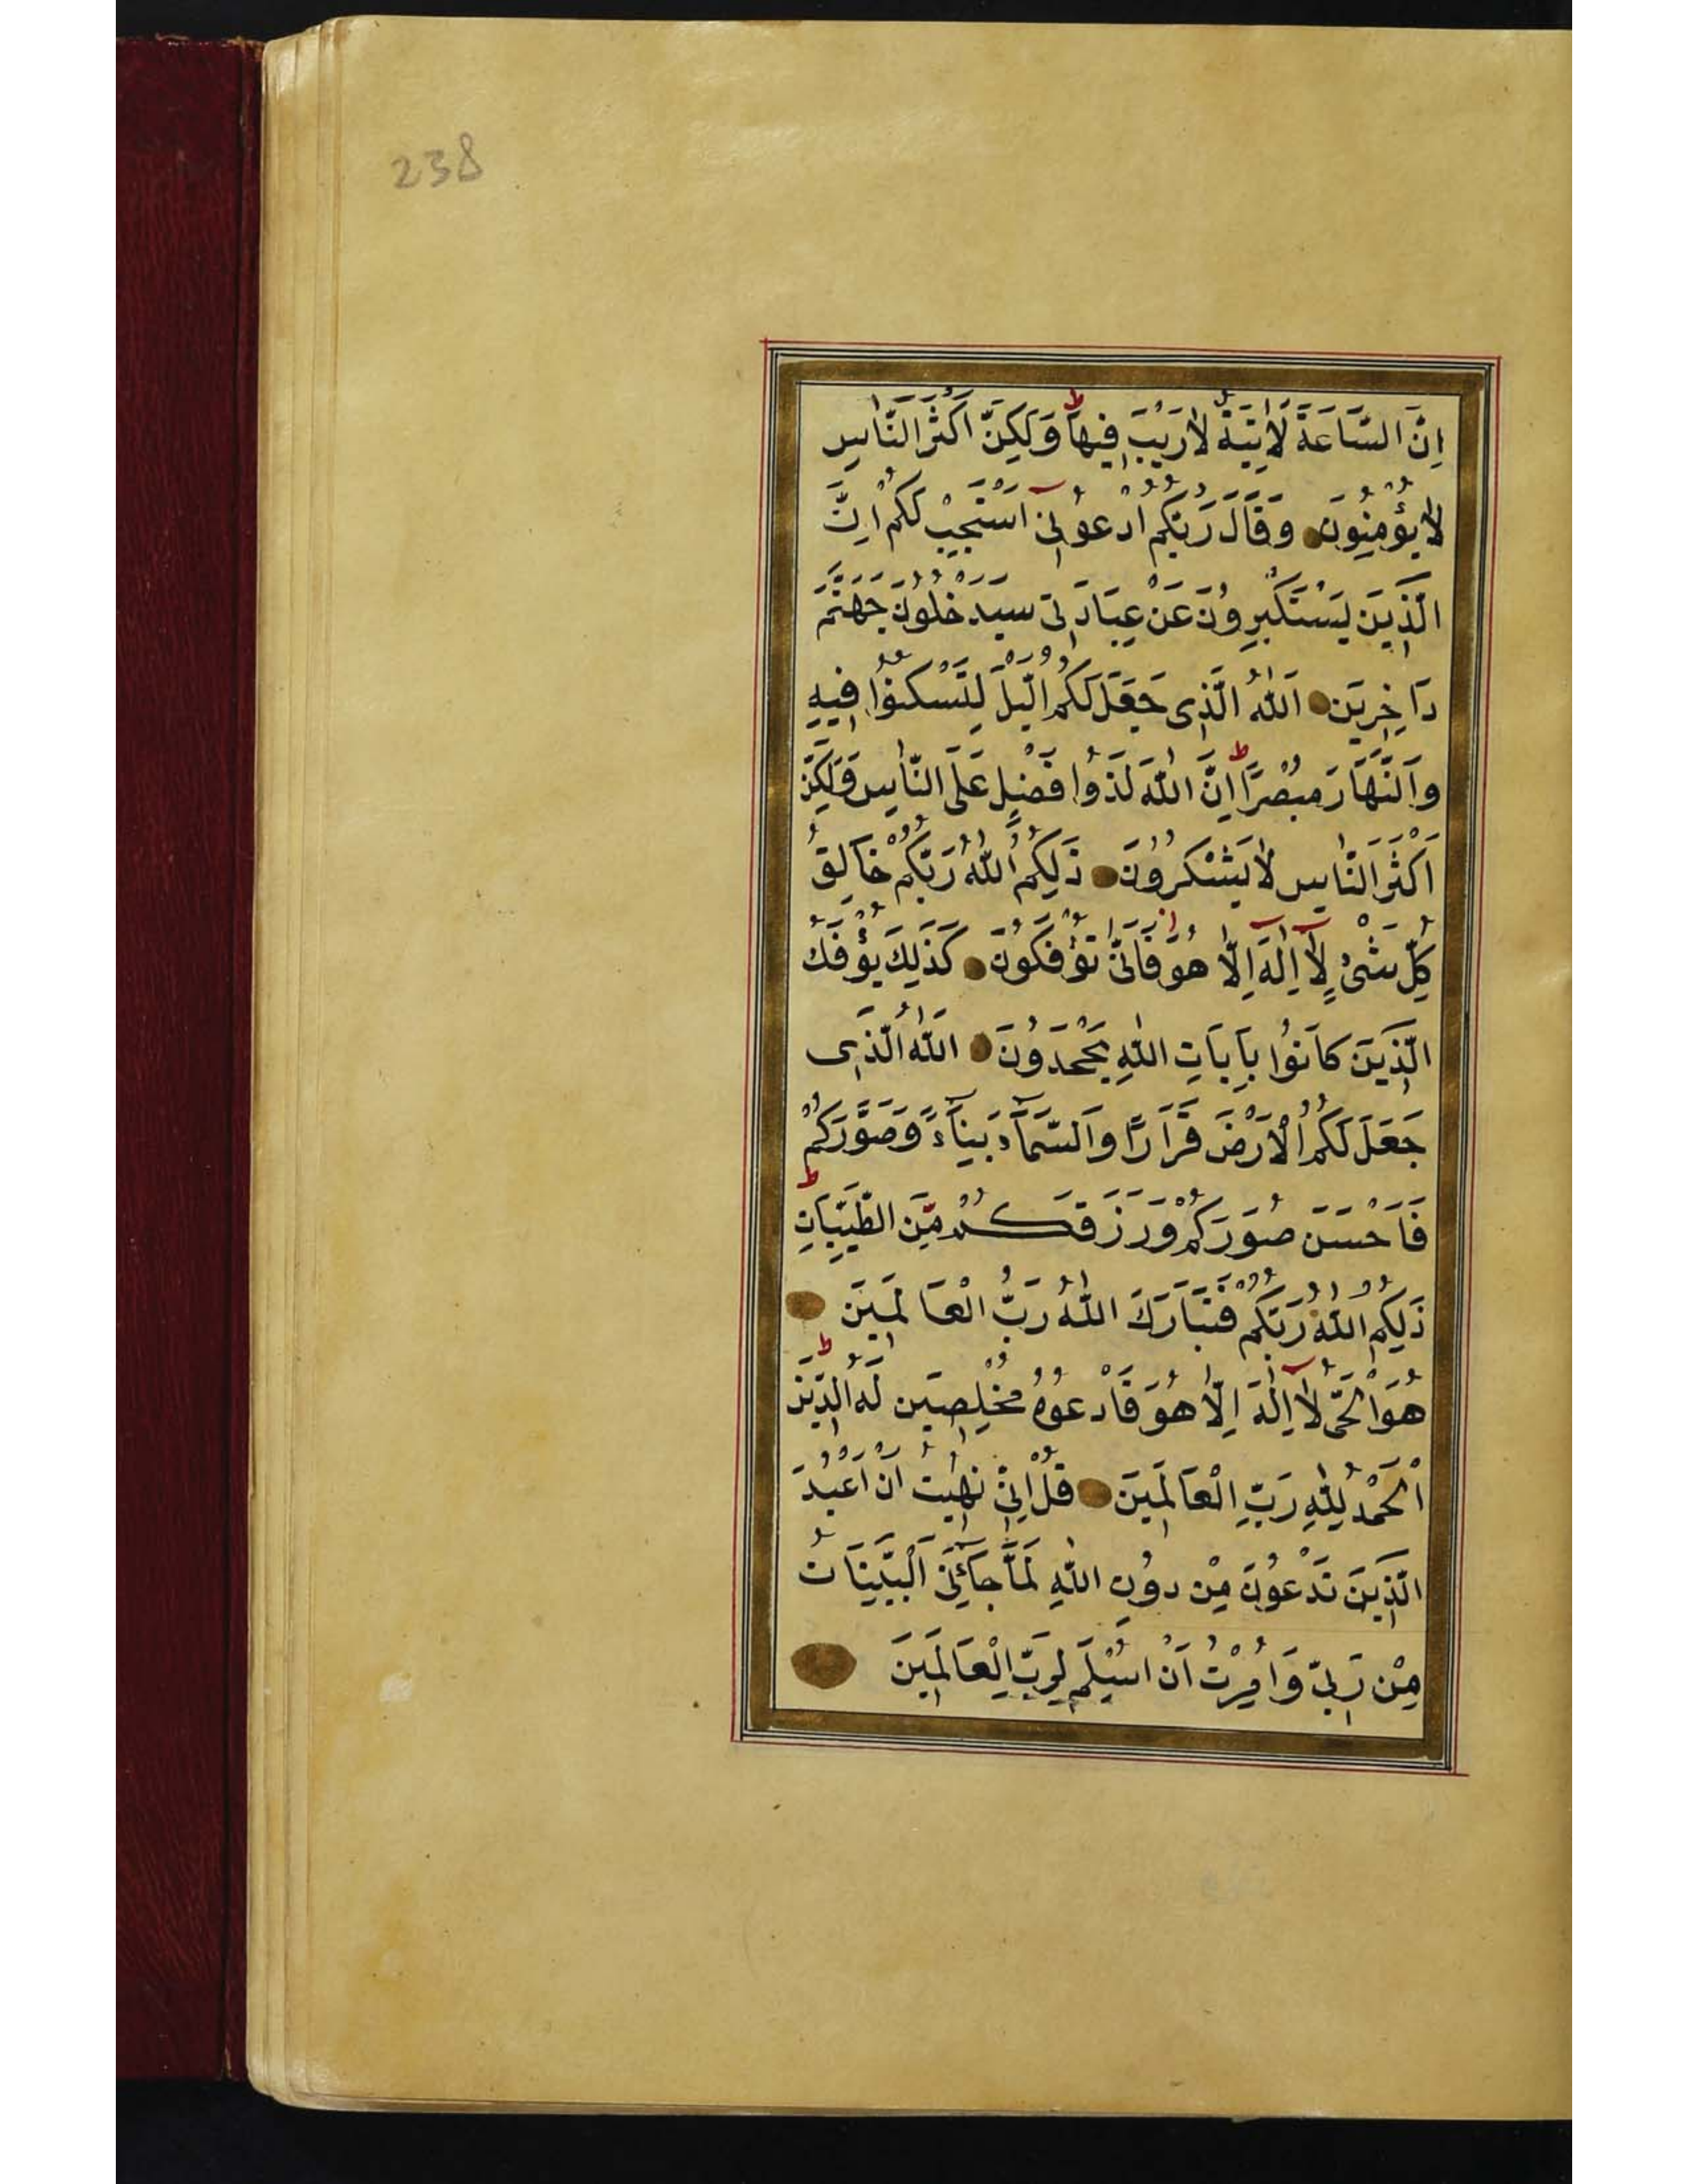 238
اِنَّ السَّاعَةَ لَاٰتِيَةٌ لَا رَيْبَ فِيهَا ط وَلٰكِنَّ اَكْثَرَ النَّاسِ
لَا يُؤْمِنُونَ وَقَالَ رَبُّكُمُ ادْعُونِىٓ اَسْتَجِبْ لَكُمْ اِنَّ
الَّذِينَ يَسْتَكْبِرُونَ عَنْ عِبَادَتِى سَيَدْخُلُونَ جَهَنَّمَ
دَاخِرِينَ اَللّٰهُ الَّذِى جَعَلَ لَكُمُ الَّيْلَ لِتَسْكُنُوا فِيهِ
وَالنَّهَارَ مُبْصِرًا ط اِنَّ اللّٰهَ لَذُوا فَضْلٍ عَلَى النَّاسِ وَلٰكِنَّ
اَكْثَرَ النَّاسِ لَا يَشْكُرُونَ ذٰلِكُمُ اللّٰهُ رَبُّكُمْ خَالِقُ
كُلِّ شَىْءٍ لَآ اِلٰهَ اِلَّا هُوَ فَاَنّٰى تُؤْفَكُونَ كَذٰلِكَ يُؤْفَكُ
الَّذِينَ كَانُوا بِاٰيَاتِ اللّٰهِ يَجْحَدُونَ اَللّٰهُ الَّذِى
جَعَلَ لَكُمُ الْاَرْضَ قَرَارًا وَالسَّمَآءَ بِنَآءً وَصَوَّرَكُمْ
فَاَحْسَنَ صُوَرَكُمْ وَرَزَقَكُمْ مِنَ الطَّيِّبَاتِ ط
ذٰلِكُمُ اللّٰهُ رَبُّكُمْ فَتَبَارَكَ اللّٰهُ رَبُّ الْعَالَمِينَ
هُوَ الْحَىُّ لَآ اِلٰهَ اِلَّا هُوَ فَادْعُوهُ مُخْلِصِينَ لَهُ الدِّينَ ط
اَلْحَمْدُ لِلّٰهِ رَبِّ الْعَالَمِينَ قُلْ اِنِّى نُهِيتُ اَنْ اَعْبُدَ
الَّذِينَ تَدْعُونَ مِنْ دُونِ اللّٰهِ لَمَّا جَآئَنِىَ الْبَيِّنَاتُ
مِنْ رَبِّى وَاُمِرْتُ اَنْ اُسْلِمَ لِرَبِّ الْعَالَمِينَ